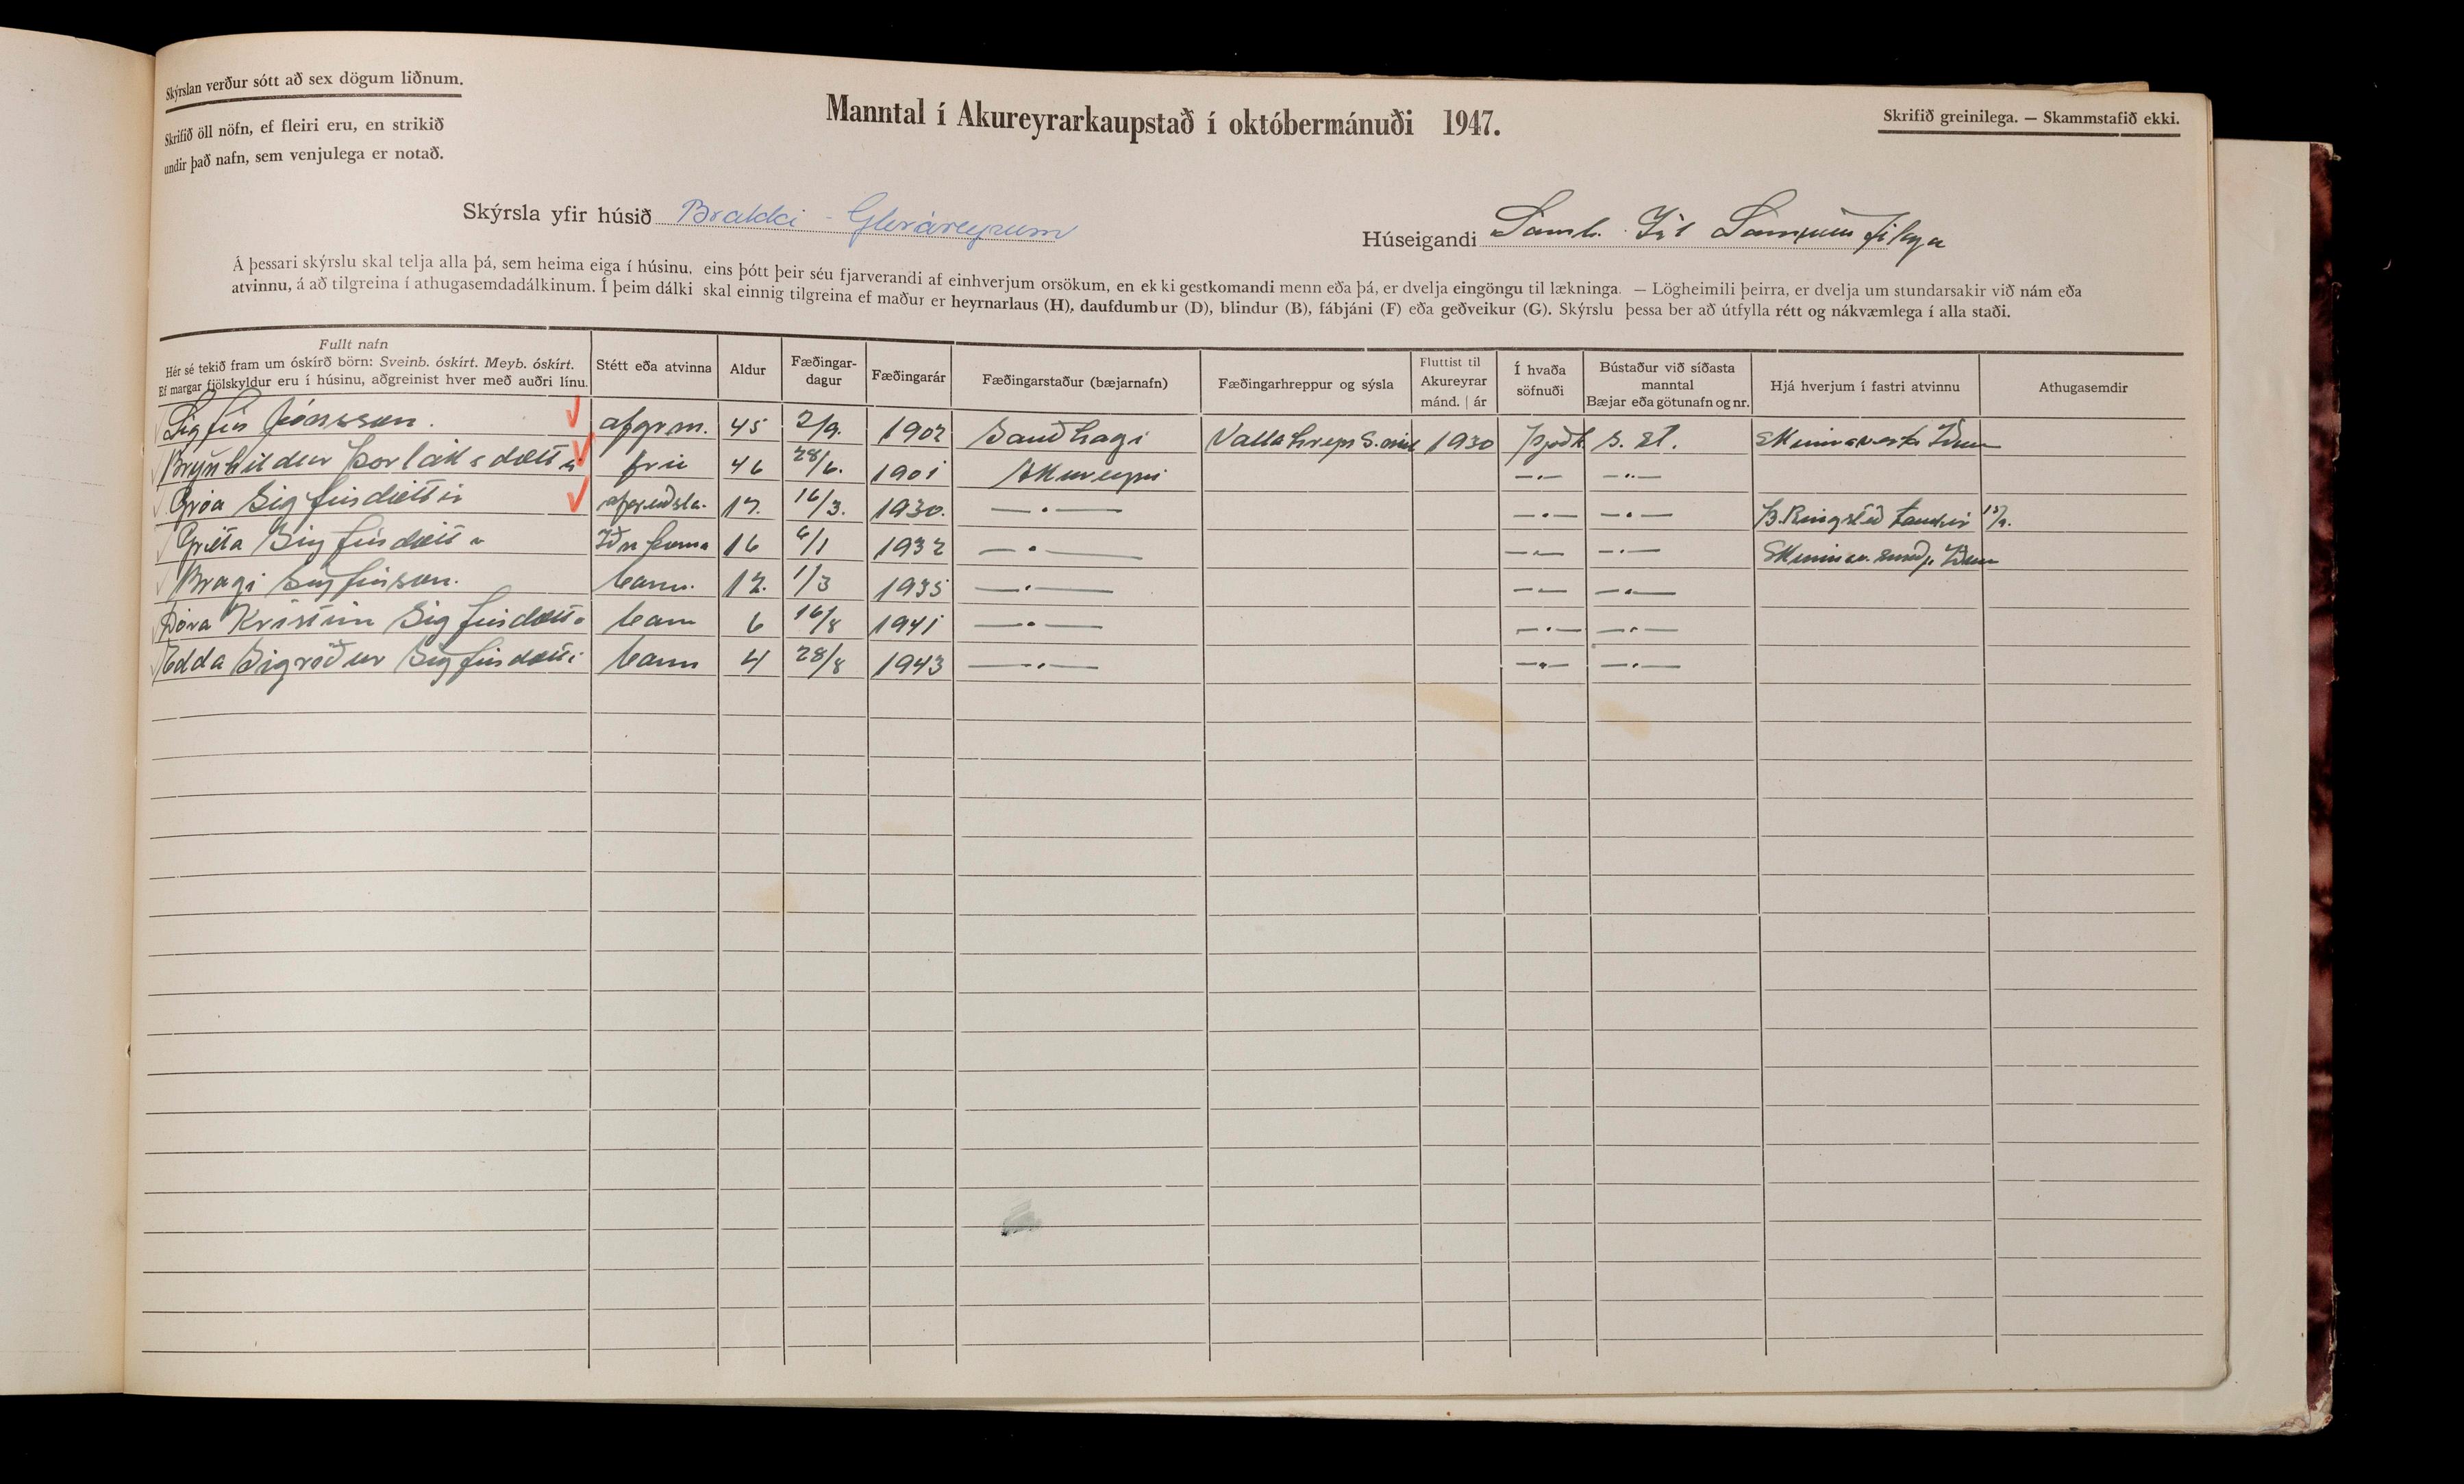 Skýrslan verður sótt að sex dögum liðnum.
Skrifið öll nöfn, ef fleiri eru, en strikið
undir það nafn, sem venjulega er notað.
Manntal í Akureyrarkaupstað í októbermánuði 1947.
Skrifið greinilega. — Skammstafið ekki.
Skýrsla yfir húsið Brakki - Gleráreyrum
Húseigandi Samb. Ísl Samvinnufélaga
Á þessari skýrslu skal telja alla þá, sem heima eiga í húsinu, eins þótt þeir séu fjarverandi af einhverjum orsökum, en ekki gestkomandi menn eða þá, er dvelja eingöngu til lækninga. — Lögheimili þeirra, er dvelja um stundarsakir við nám eða
atvinnu, á að tilgreina í athugasemdadálkinum. Í þeim dálki skal einnig tilgreina ef maður er heyrnarlaus (H), daufdumbur (D), blindur (B), fábjáni (F) eða geðveikur (G). Skýrslu þessa ber að útfylla rétt og nákvæmlega í alla staði.
Fullt nafn
Hér sé tekið fram um óskírð börn: Sveinb. óskírt. Meyb. óskírt.
Ef margar fjölskyldur eru í húsinu, aðgreinist hver með auðri línu.
Stétt eða atvinna
Aldur
Fæðingar-
dagur
Fæðingarár
Fæðingarstaður (bæjarnafn)
Fæðingarhreppur og sýsla
Fluttist til
Akureyrar
mánd. | ár
Í hvaða
söfnuði
Bústaður við síðasta
manntal
Bæjar eða götunafn og nr.
Hjá hverjum í fastri atvinnu
Athugasemdir
Sigfús Jónsson. afgrm. 45 2/9. 1902 Sauðhagi Vallahrepp S. múl 1930 Þjóðk s. st. Skinnaverks. Iðunn
Brynhildur Þorláksdóttir frú 46 28/6. 1901 Akureyri —·— —··—
Gróa Sigfúsdóttir afgreiðsla. 17. 16/3. 1930. —·— —·— —·— B. Ringsted 15/9.
Gréta Sigfúsdóttir Iðn 16 6/1 1932 —·— —·— —·— Iðunn
Bragi Sigfússon. barn. 12. 1/3 1935 —·— —·— —·—
Þóra Kristín Sigfúsdóttir barn 6 16/8 1941 —·— —·— —·—
Edda Sigríður Sigfúsdóttir barn 4 28/8 1943 —·— —·— —·—